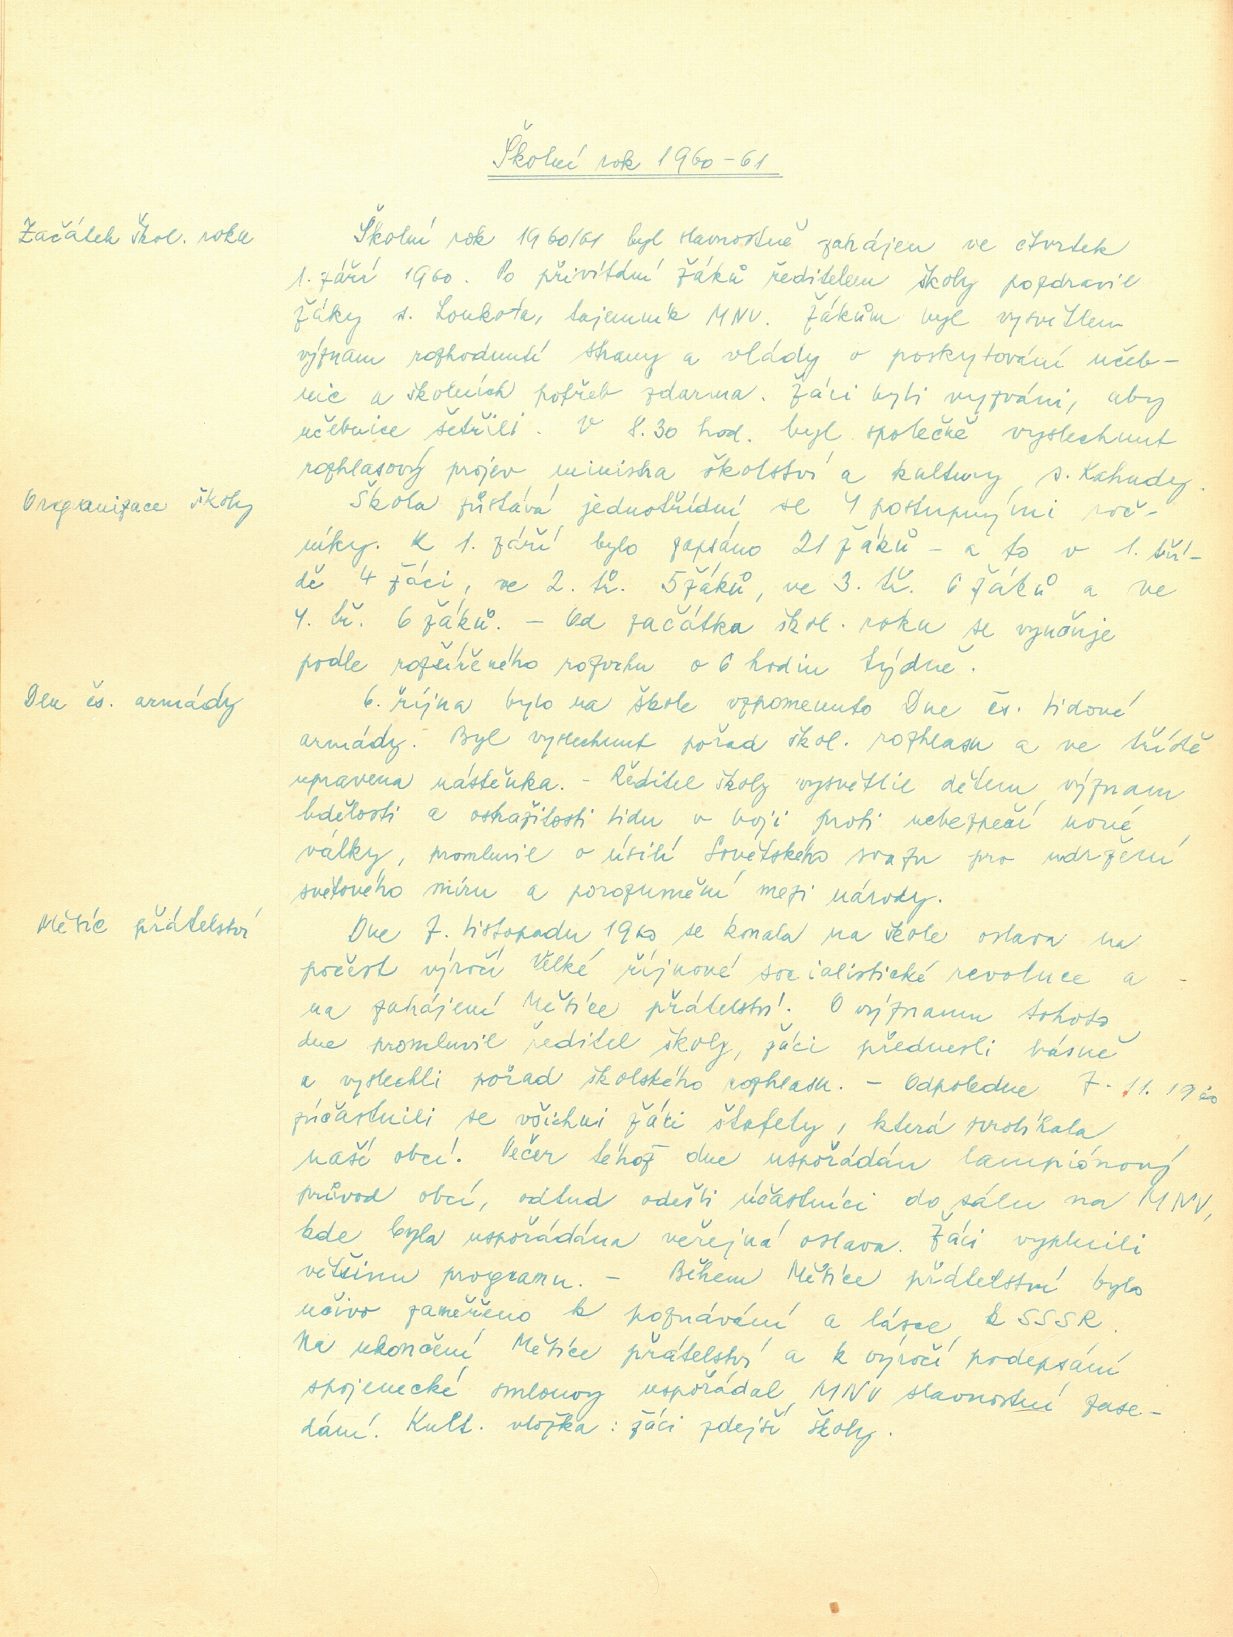 Školní rok 1960-61
Začátek škol. roku
Školní rok 1960/61 byl slavnostně zahájen ve čtvrtek
1. září 1960. Po přivítání žáků ředitelem školy pozdravil
žáky s. Loukota, tajemník MNV. Žákům byl vysvětlen
význam rozhodnutí strany a vlády o poskytování učeb-
nic a školních potřeb zdarma. Žáci byli vyzváni, aby
učebnice šetřili. V 8.30 hod. byl společně vyslechnut
rozhlasový projev ministra školství a kultury s. Kahudy.
Organizace školy
Škola zůstává jednotřídní se 4 postupnými roč-
níky. K 1. září bylo zapsáno 21 žáků - a to v 1. tří-
dě 4 žáci, ve 2. tř. 5 žáků, ve 3. tř. 6 žáků a ve
4. tř. 6 žáků. - Od začátku škol. roku se vyučuje
podle rozšířeného rozvrhu o 6 hodin týdně.
Den čs. armády
6. října bylo na škole vzpomenuto Dne čs. lidové
armády. Byl vyslechnut pořad škol. rozhlasu a ve třídě
upravena nástěnka. - Ředitel školy vysvětlil dětem význam
bdělosti a ostražitosti lidu v boji proti nebezpečí nové
války, promluvil o úsilí Sovětského svazu pro udržení
světového míru a porozumění mezi národy.
Měsíc přátelství
Dne 7. listopadu 1960 se konala na škole oslava na
počest výročí Velké říjnové socialistické revoluce a
na zahájení Měsíce přátelství. O významu tohoto
dne promluvil ředitel školy, žáci přednesli básně
a vyslechli pořad školského rozhlasu. - Odpoledne 7. 11. 1960
zúčastnili se všichni žáci štafety, která probíhala
naší obcí. Večer téhož dne uspořádán lampiónový
průvod obcí, odtud odešli účastníci do sálu na MNV,
kde byla uspořádána veřejná oslava. Žáci vyplnili
většinu programu. - Během Měsíce přátelství bylo
učivo zaměřeno k poznávání a lásce k SSSR.
Na ukončení Měsíce přátelství a k výročí podepsání
spojenecké smlouvy uspořádal MNV slavnostní zase-
dání. Kult. vložka: žáci zdejší školy.